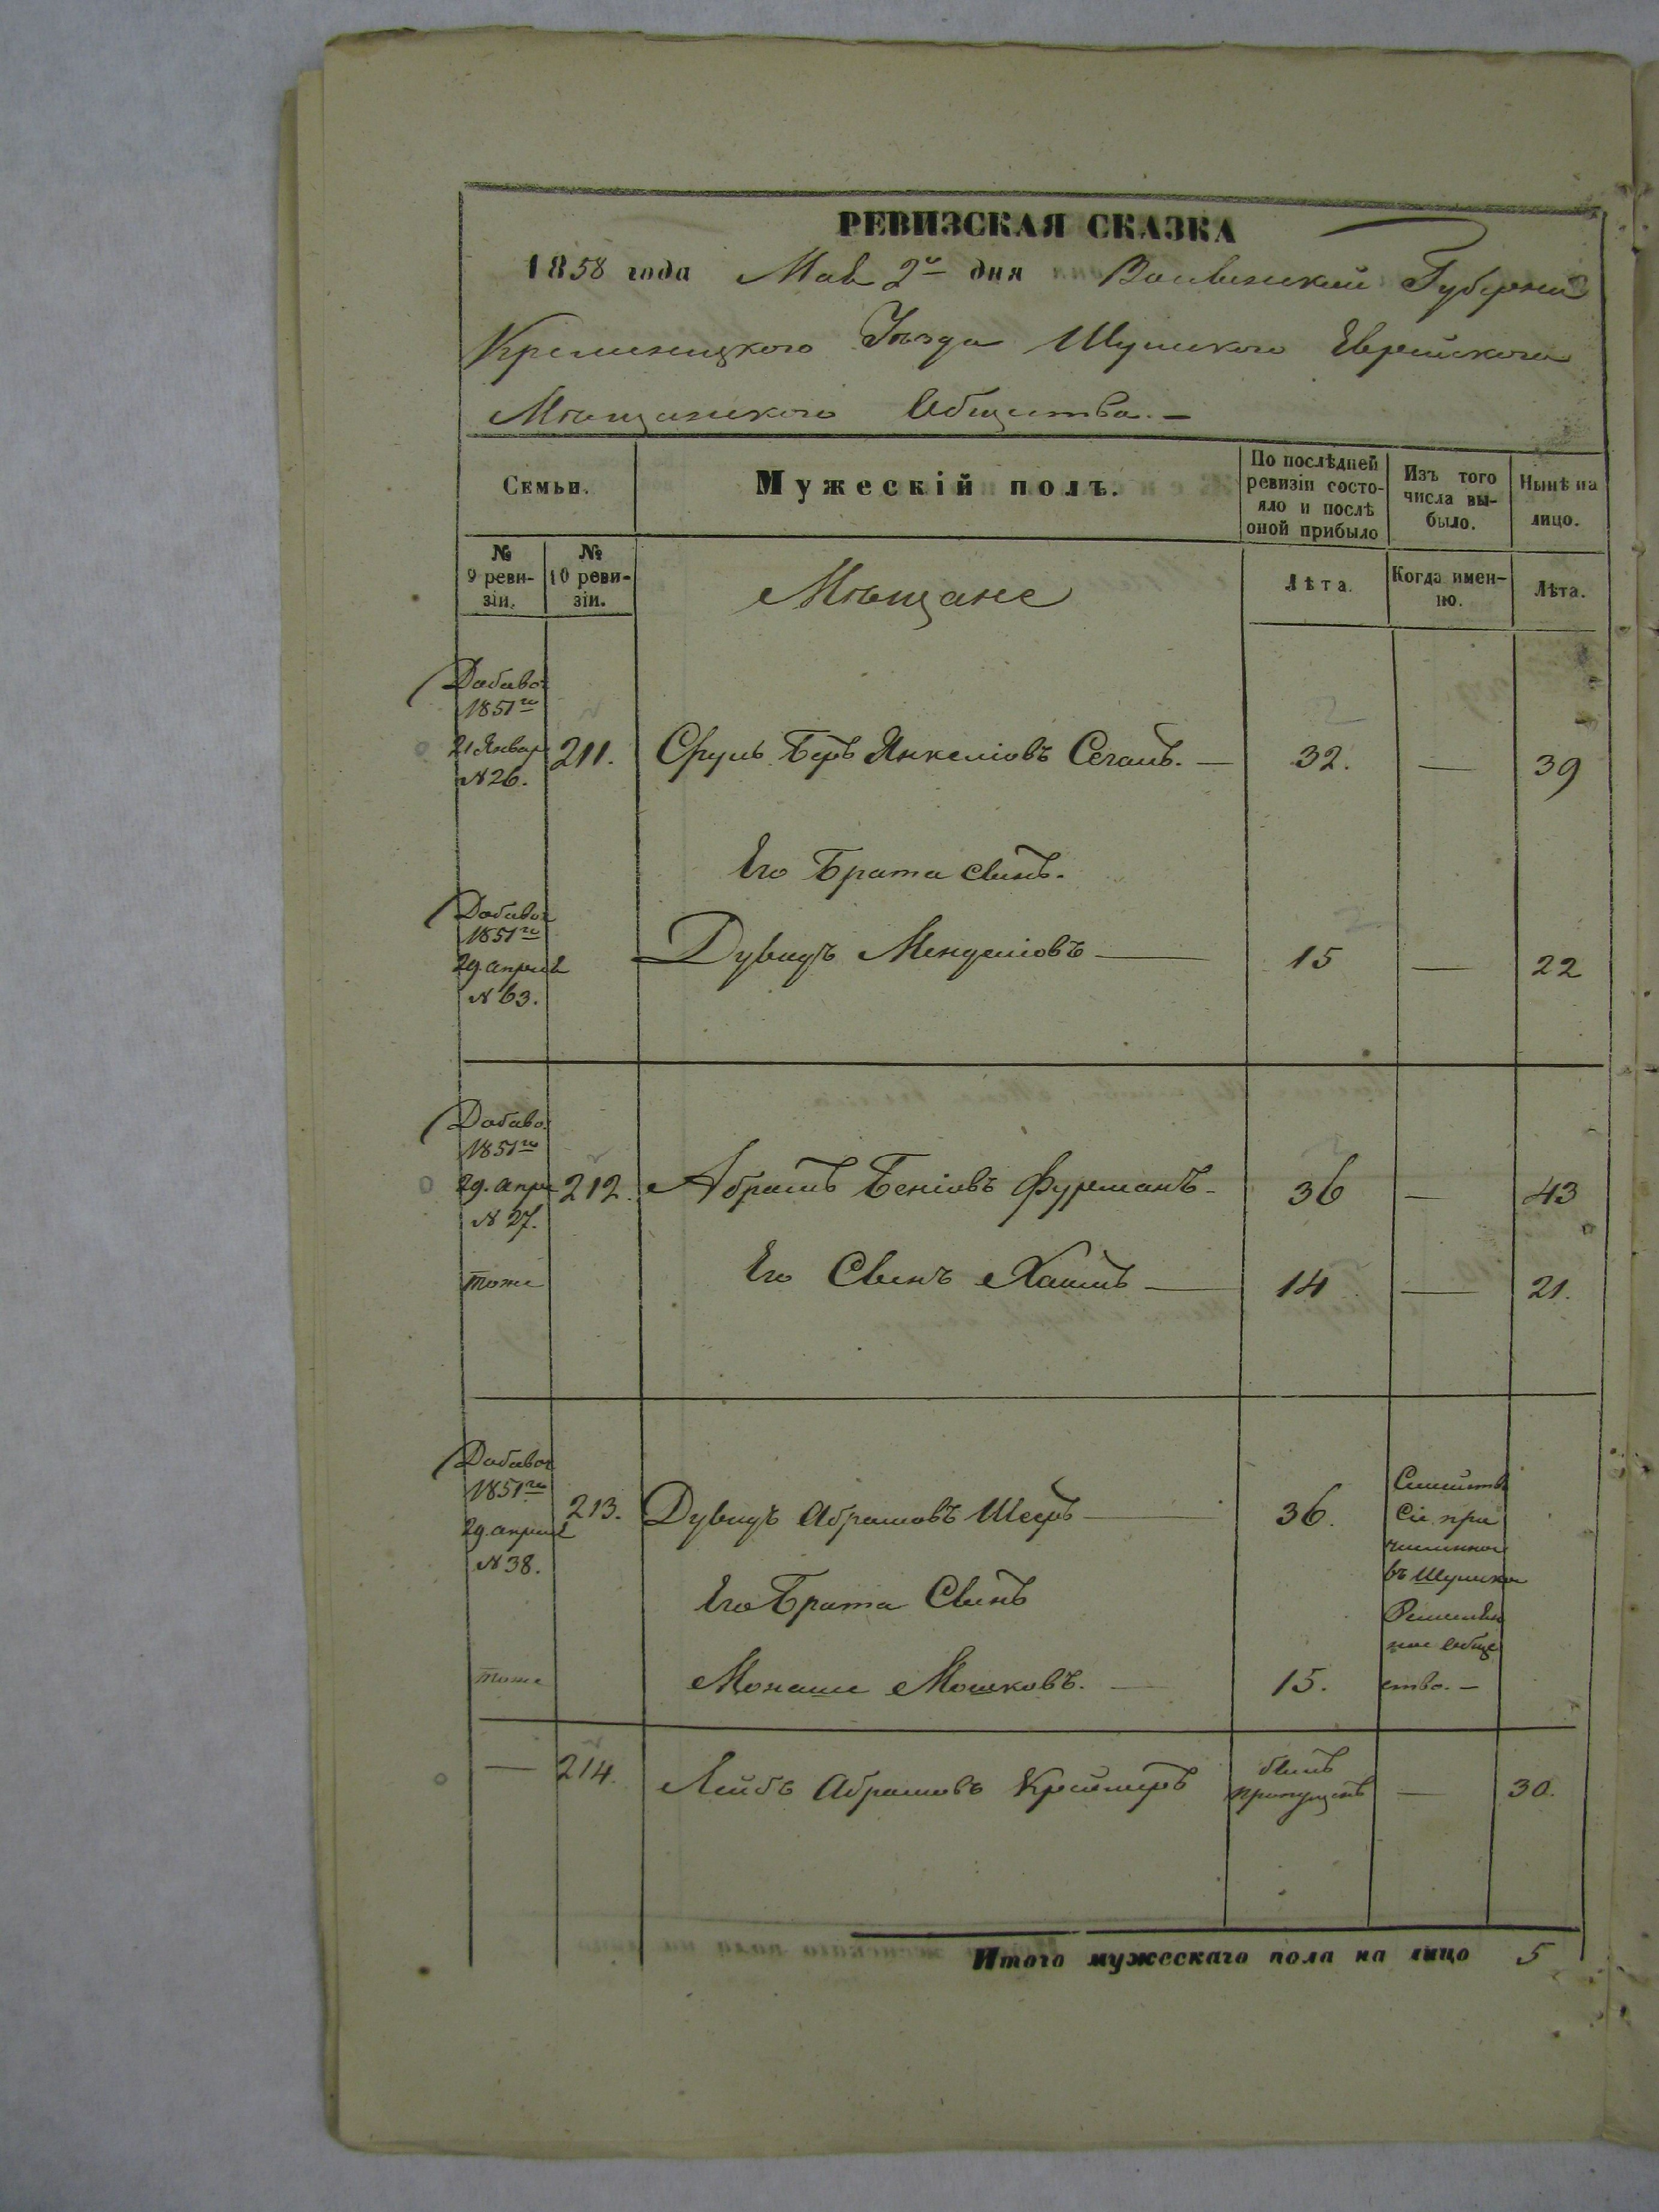 РЕВИЗСКАЯ СКАЗКА
1858 года Мая 2го дня Волынской Губерніи
Кременецкого Уѣзда Шумского Еврейского
Мѣщанского Общества. —
Семьи.
Мужескій полъ.
По послѣдней ревизіи состояло и послѣ оной прибыло
Изъ того числа выбыло.
Нынѣ на лицо.
№ 9 ревизіи.
№ 10 ревизіи.
Мѣщане
Лѣта.
Когда именно.
Лѣта.
Добавоч
1851го
21 Январ
N 26.
211. Сруль Беръ Янкеліовъ Сегалъ. — 32. — 39
Его Брата сынъ.
Добавоч
1851го
29 апрелѣ
N 63.
Дувидъ Менделіовъ — 15 — 22
Добавоч
1851го
29. апре
N 27.
212. Абрамъ Беніовъ Фурманъ - 36 — 43
тоже Его Сынъ Хаимъ — 14 — 21.
Добавоч
1851го
29. апрелѣ
N 38.
213. Дувидъ Абрамовъ Шееръ — 36.
Его Брата Сынъ
тоже Монаше Мошковъ. — 15.
Семейство
Сіе при
численно
въ Шумское
Ремеслен
ное Обще
ство. —
— 214. Лейбъ Абрамовъ Крейmеръ былъ пропущенъ — 30.
Итого мужескаго пола на лицо 5